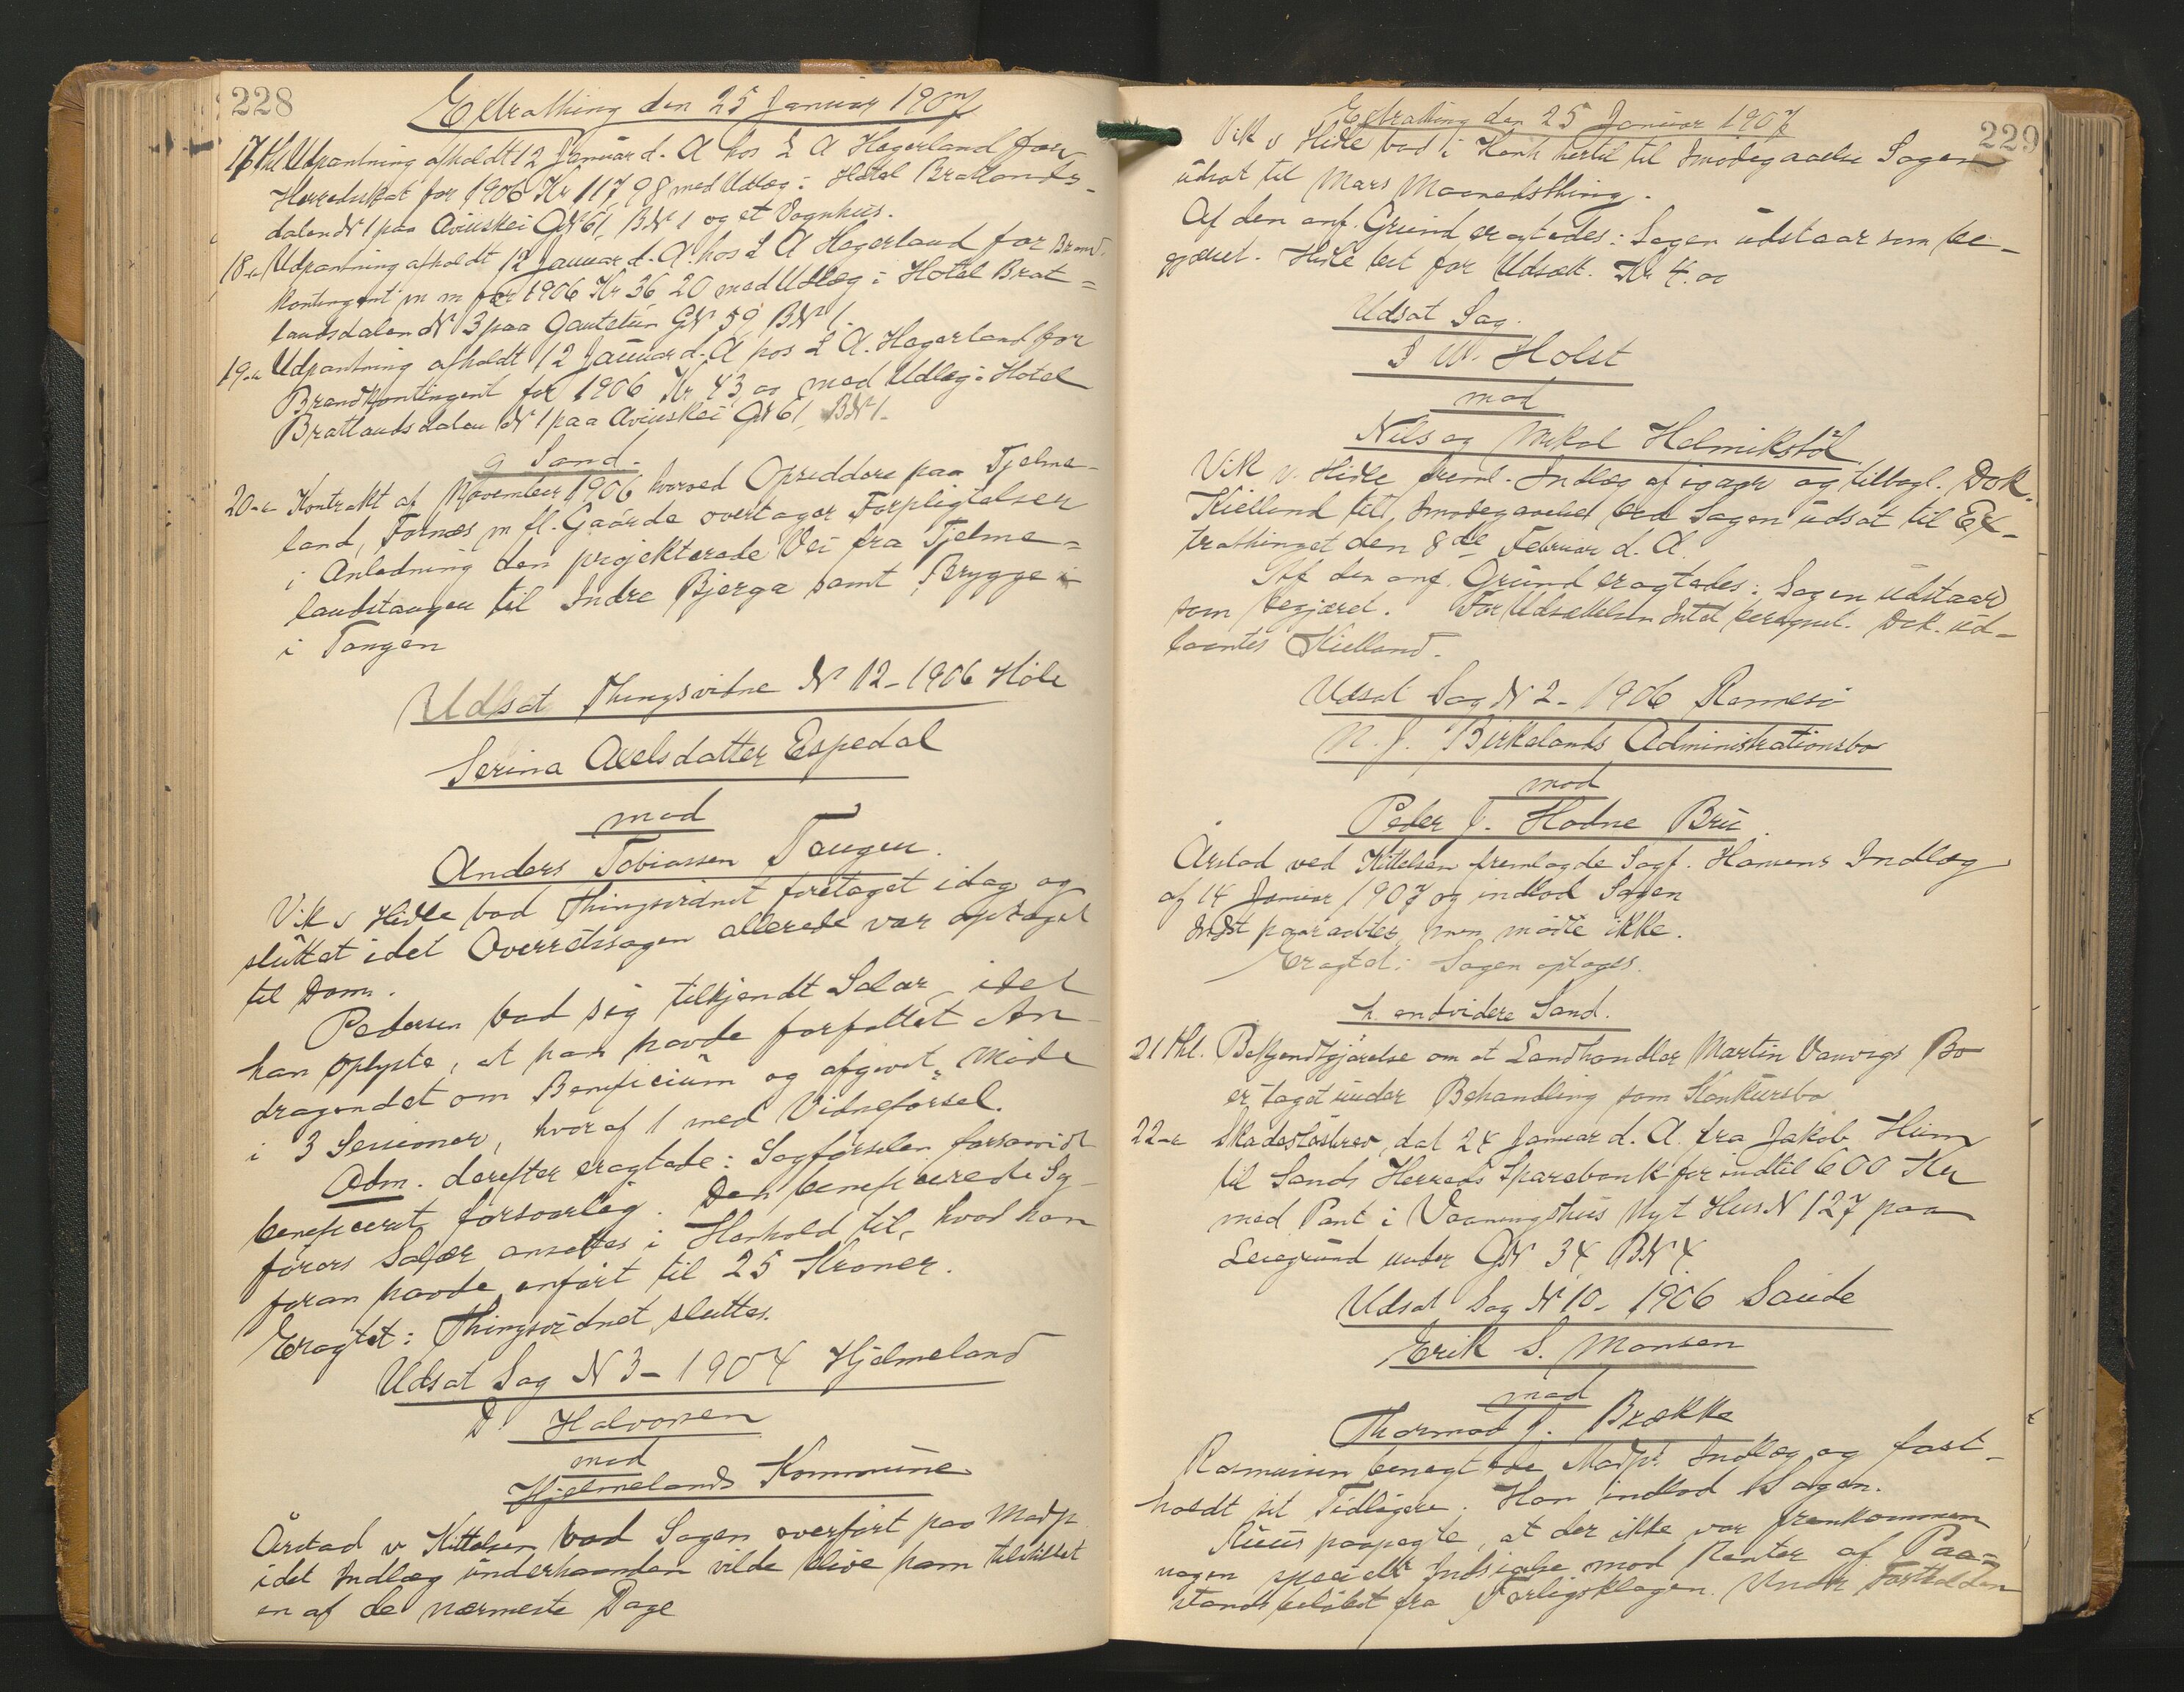 228
Extrathing den 25 Januar 1907
17 thl Udpantning afholdt 12 Januar d. A hos L A Hagerland for
Herredsskat for 1906 Kr 117,98 med Udlæg i Hotel Bratlands-
dalen N 1 paa Aviuskei GN 61, BN 1 og et Vognhus.
18-" Udpantning afholdt 12 Januar d. A. hos L A Hagerland for Brand-
kontingent m m for 1906 Kr 36 20 med Udlæg i Hotel Brat=
landsdalen N 3 paa Gautetun GN 59, BN 1.
19-" Udpantning afholdt 12 Januar d. A hos L A. Hagerland for
Brandkontingent for 1906 Kr 43,00 med Udlæg i Hotel
Bratlandsdalen N 1 paa Aviuskei GN 61, BN 1-
g Sand.
20-" Kontrakt af November 1906 hvorved Opsiddere paa Tjelme-
land, Fornæs m fl. Gaarde overtager Forpligtelser
i Anledning den projekterede Vei fra Tjelme=
landstangen til Indre Bjerga samt Brygge
i Tangen
Udsat Thingsvidne N 12-1906 Høle
Serina Axelsdatter Espedal
mod
Anders Tobiassen Tengen.
Vik v Hidle bad Thingsvidnet foretaget idag og
sluttet idet Overretssagen allerede var optaget
til Dom.
Pedersen bad sig tilkjendt Salær, idet
han oplyste, at han havde forfattet An-
dragendet om Beneficium og afgivet Møde
i 3 Sessioner, hvoraf 1 med Vidneførsel.
Adm. derefter eragtede: Sagførselen forsaavidt
beneficeret forsvarlig. Den beneficerede Sag-
førers Salær ansættes i Henhold til, hvad han
foran havde anført til 25 Kroner.
Eragtet: Thingsvidnet sluttes.
Udsat Sag N 3-1904 Hjelmeland
D Halvorsen
mod
Hjelmelands Kommune
Årstad v Kittelsen bad Sagen overført paa Modp
idet Indlæg underhaanden vilde blive ham tilstillet
en af de nærmeste Dage
229
Extrathing den 25 Januar 1907
Vik v Hidle bad i Henh hertil til Imødegaaelse Sagen
udsat til Mars Maanedsthing.
Af den anf. Grund eragtedes: Sagen udstaar som be-
gjæret. Hidle bet for Udsætt. Kr 4.00
Udsat Sag.
I W. Holst
mod
Nils og Mikal Helmikstøl
Vik v. Hidle freml. Indlæg af igaar og tilbagl. Dok.
Kielland til Imødegaaelse bad Sagen udsat til Ex-
trathinget den 8de Februar d. A.
Paa den anf. Grund eragtedes: Sagen udstaar
som begjæret. For Udsættelsen Intet beregnet. Dok. ud-
laantes Kielland.
Udsat Sag N 2-1906 Rennesø
N. J. Birkelands Administrationsbo
mod
Peder J. Hodne Bru.
Årstad ved Kittelsen fremlagde Sagf. Hansens Indlæg
af 14 Januar 1907 og indlod Sagen
Indst paaraabtes, men mødte ikke.
Eragtet: Sagen optages.
h. endvidere Sand.
21 thl. Bekjendtgjørelse om at Landhandler Martin Vanvigs Bo
er taget under Behandling som Konkursbo
22-" Skadesløsbrev, dat 24 Januar d. A. fra Jakob Heim
til Sands Herreds Sparebank for indtil 600 Kr
med Pant i Vaaningshus Nyt Hus N 127 paa
Leiegrund under GN 34 BN 4
Udsat Sag N 10-1906 Saude
Erik S. Monsen
mod
Thormod J. Brække
Rasmussen benegtede Modp's Indlæg og fast-
holdt sit Tidligere. Han indlod Sagen.
Ruus paapegte, at der ikke var fremkommen
nogen speciell Indsigelse mod Renter af Paa=
standsbeløbet fra Forligsklagen. Under Fastholden